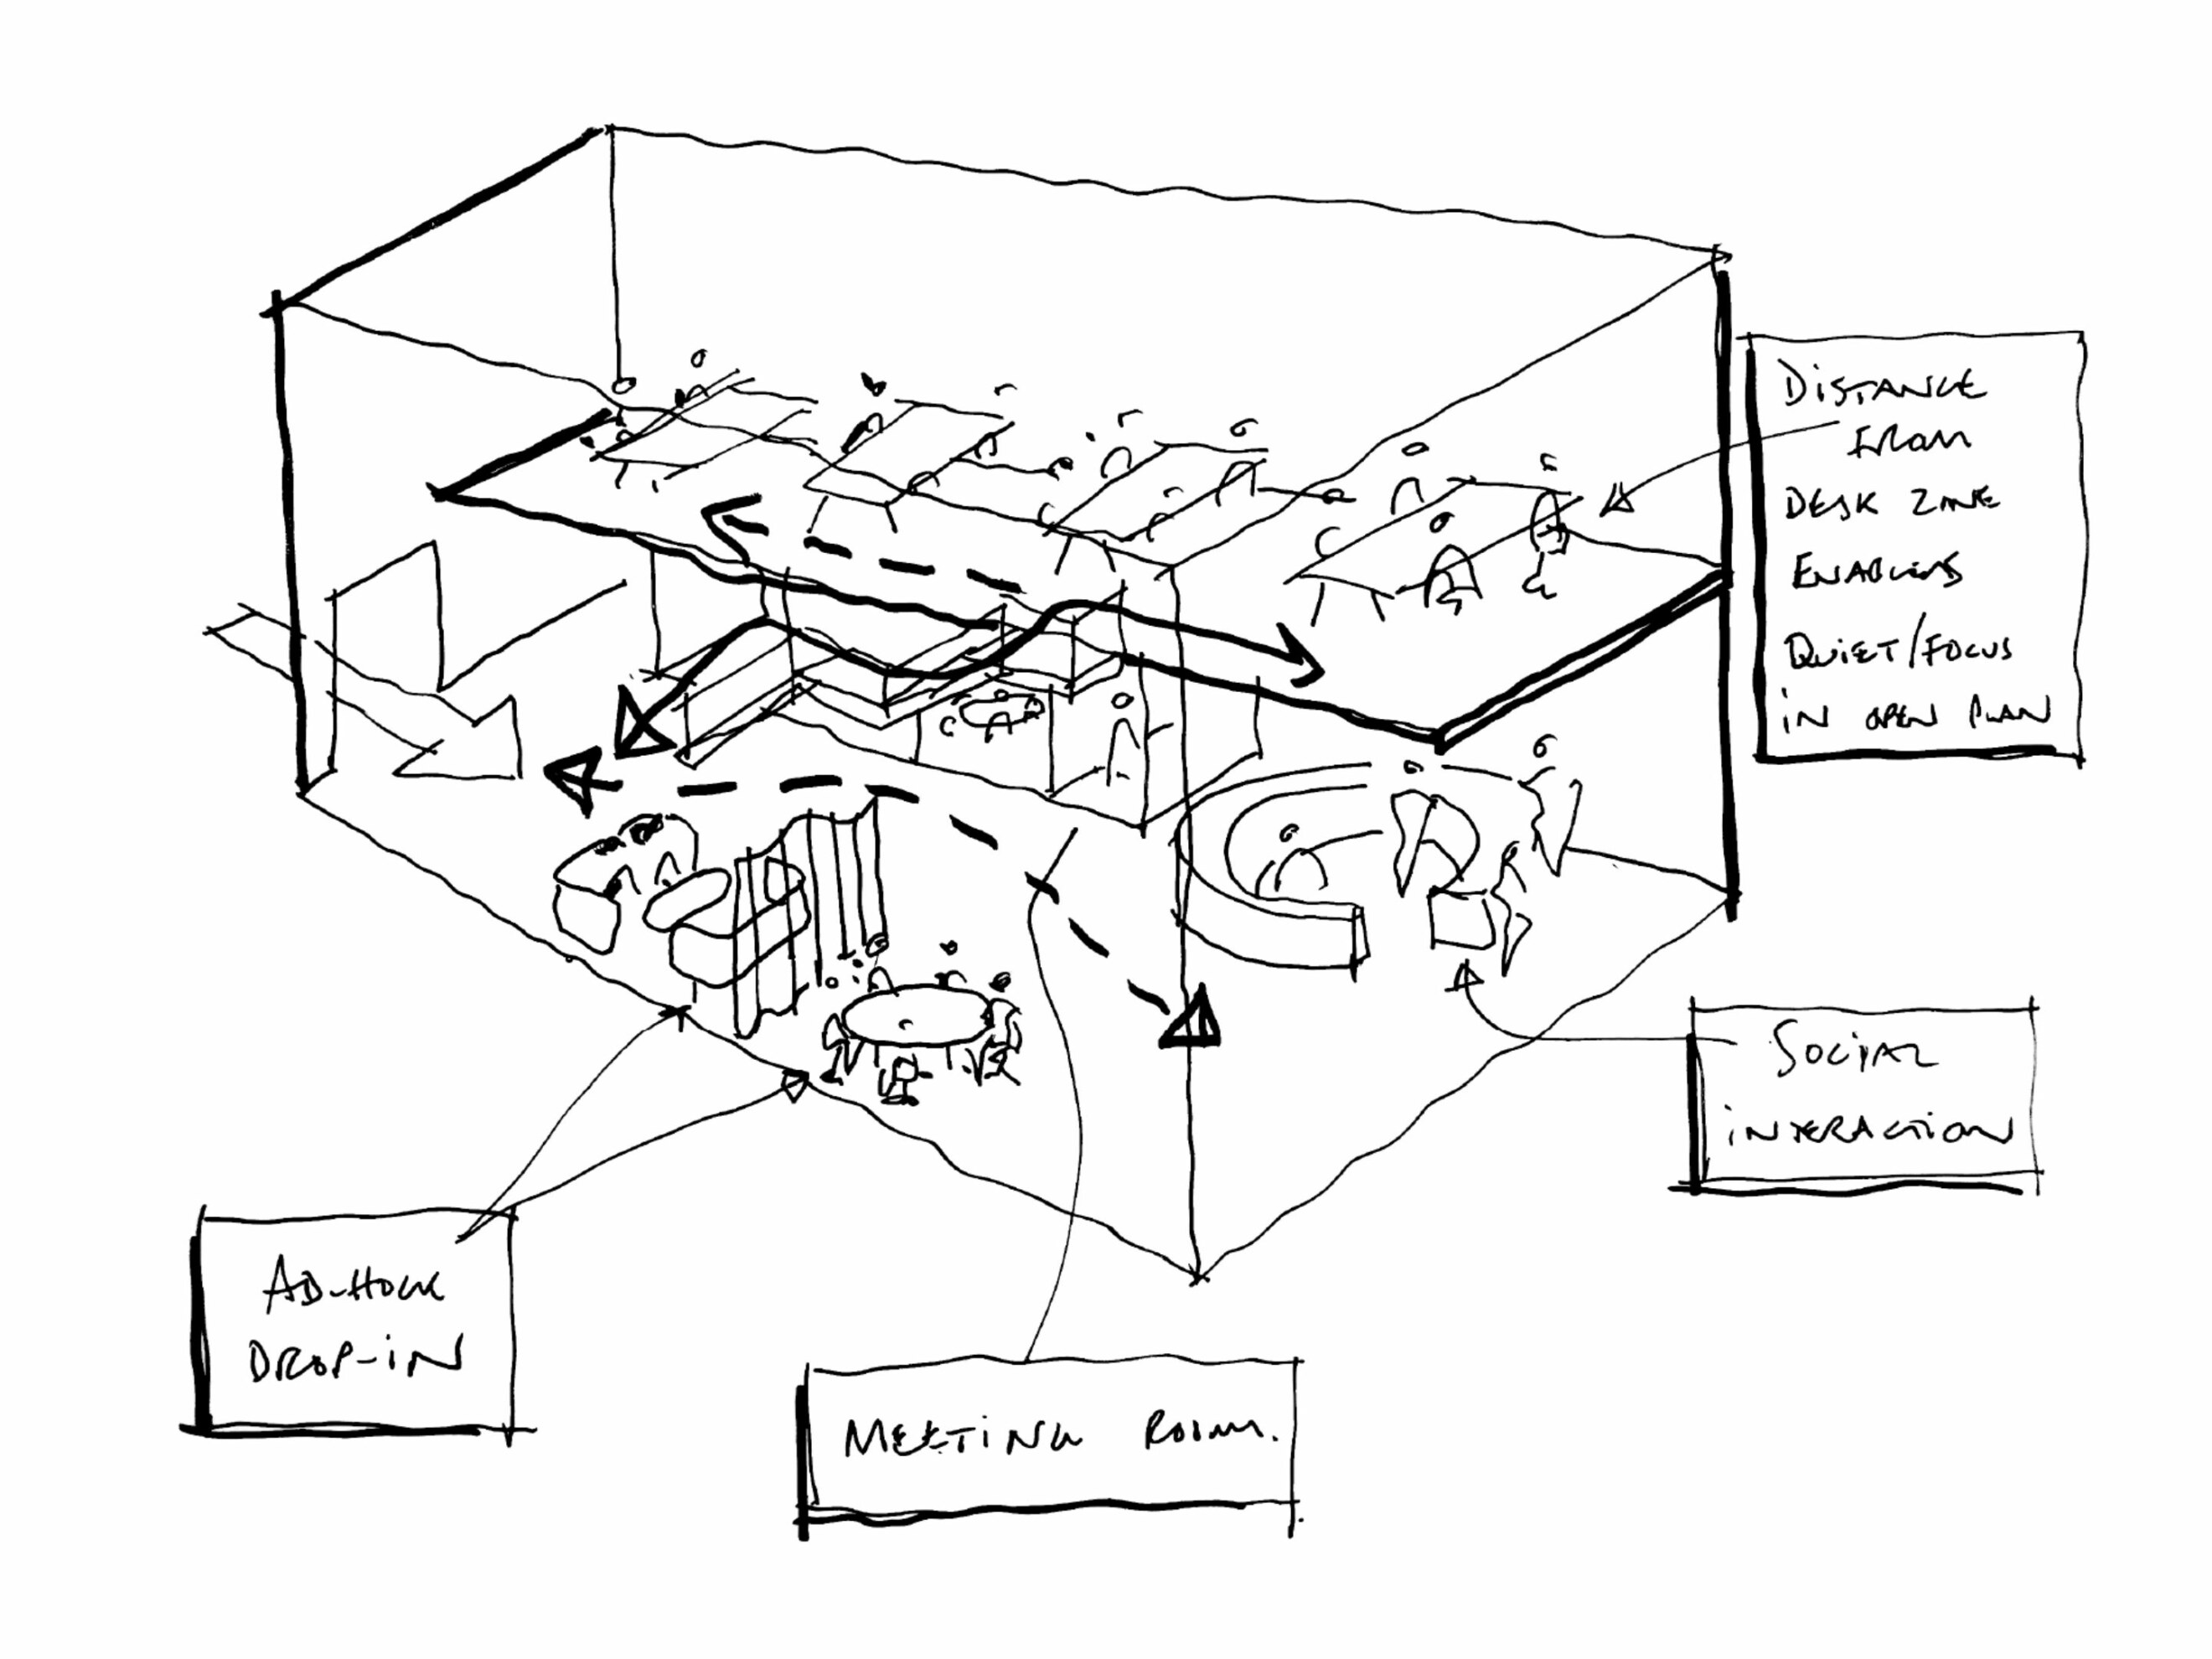 DISTANCE
FROM
DESK ZONE
ENABLES
QUIET/FOCUS
IN OPEN PLAN
SOCIAL
INTERACTION
AD-HOCK
DROP-IN
MEETING ROOM.